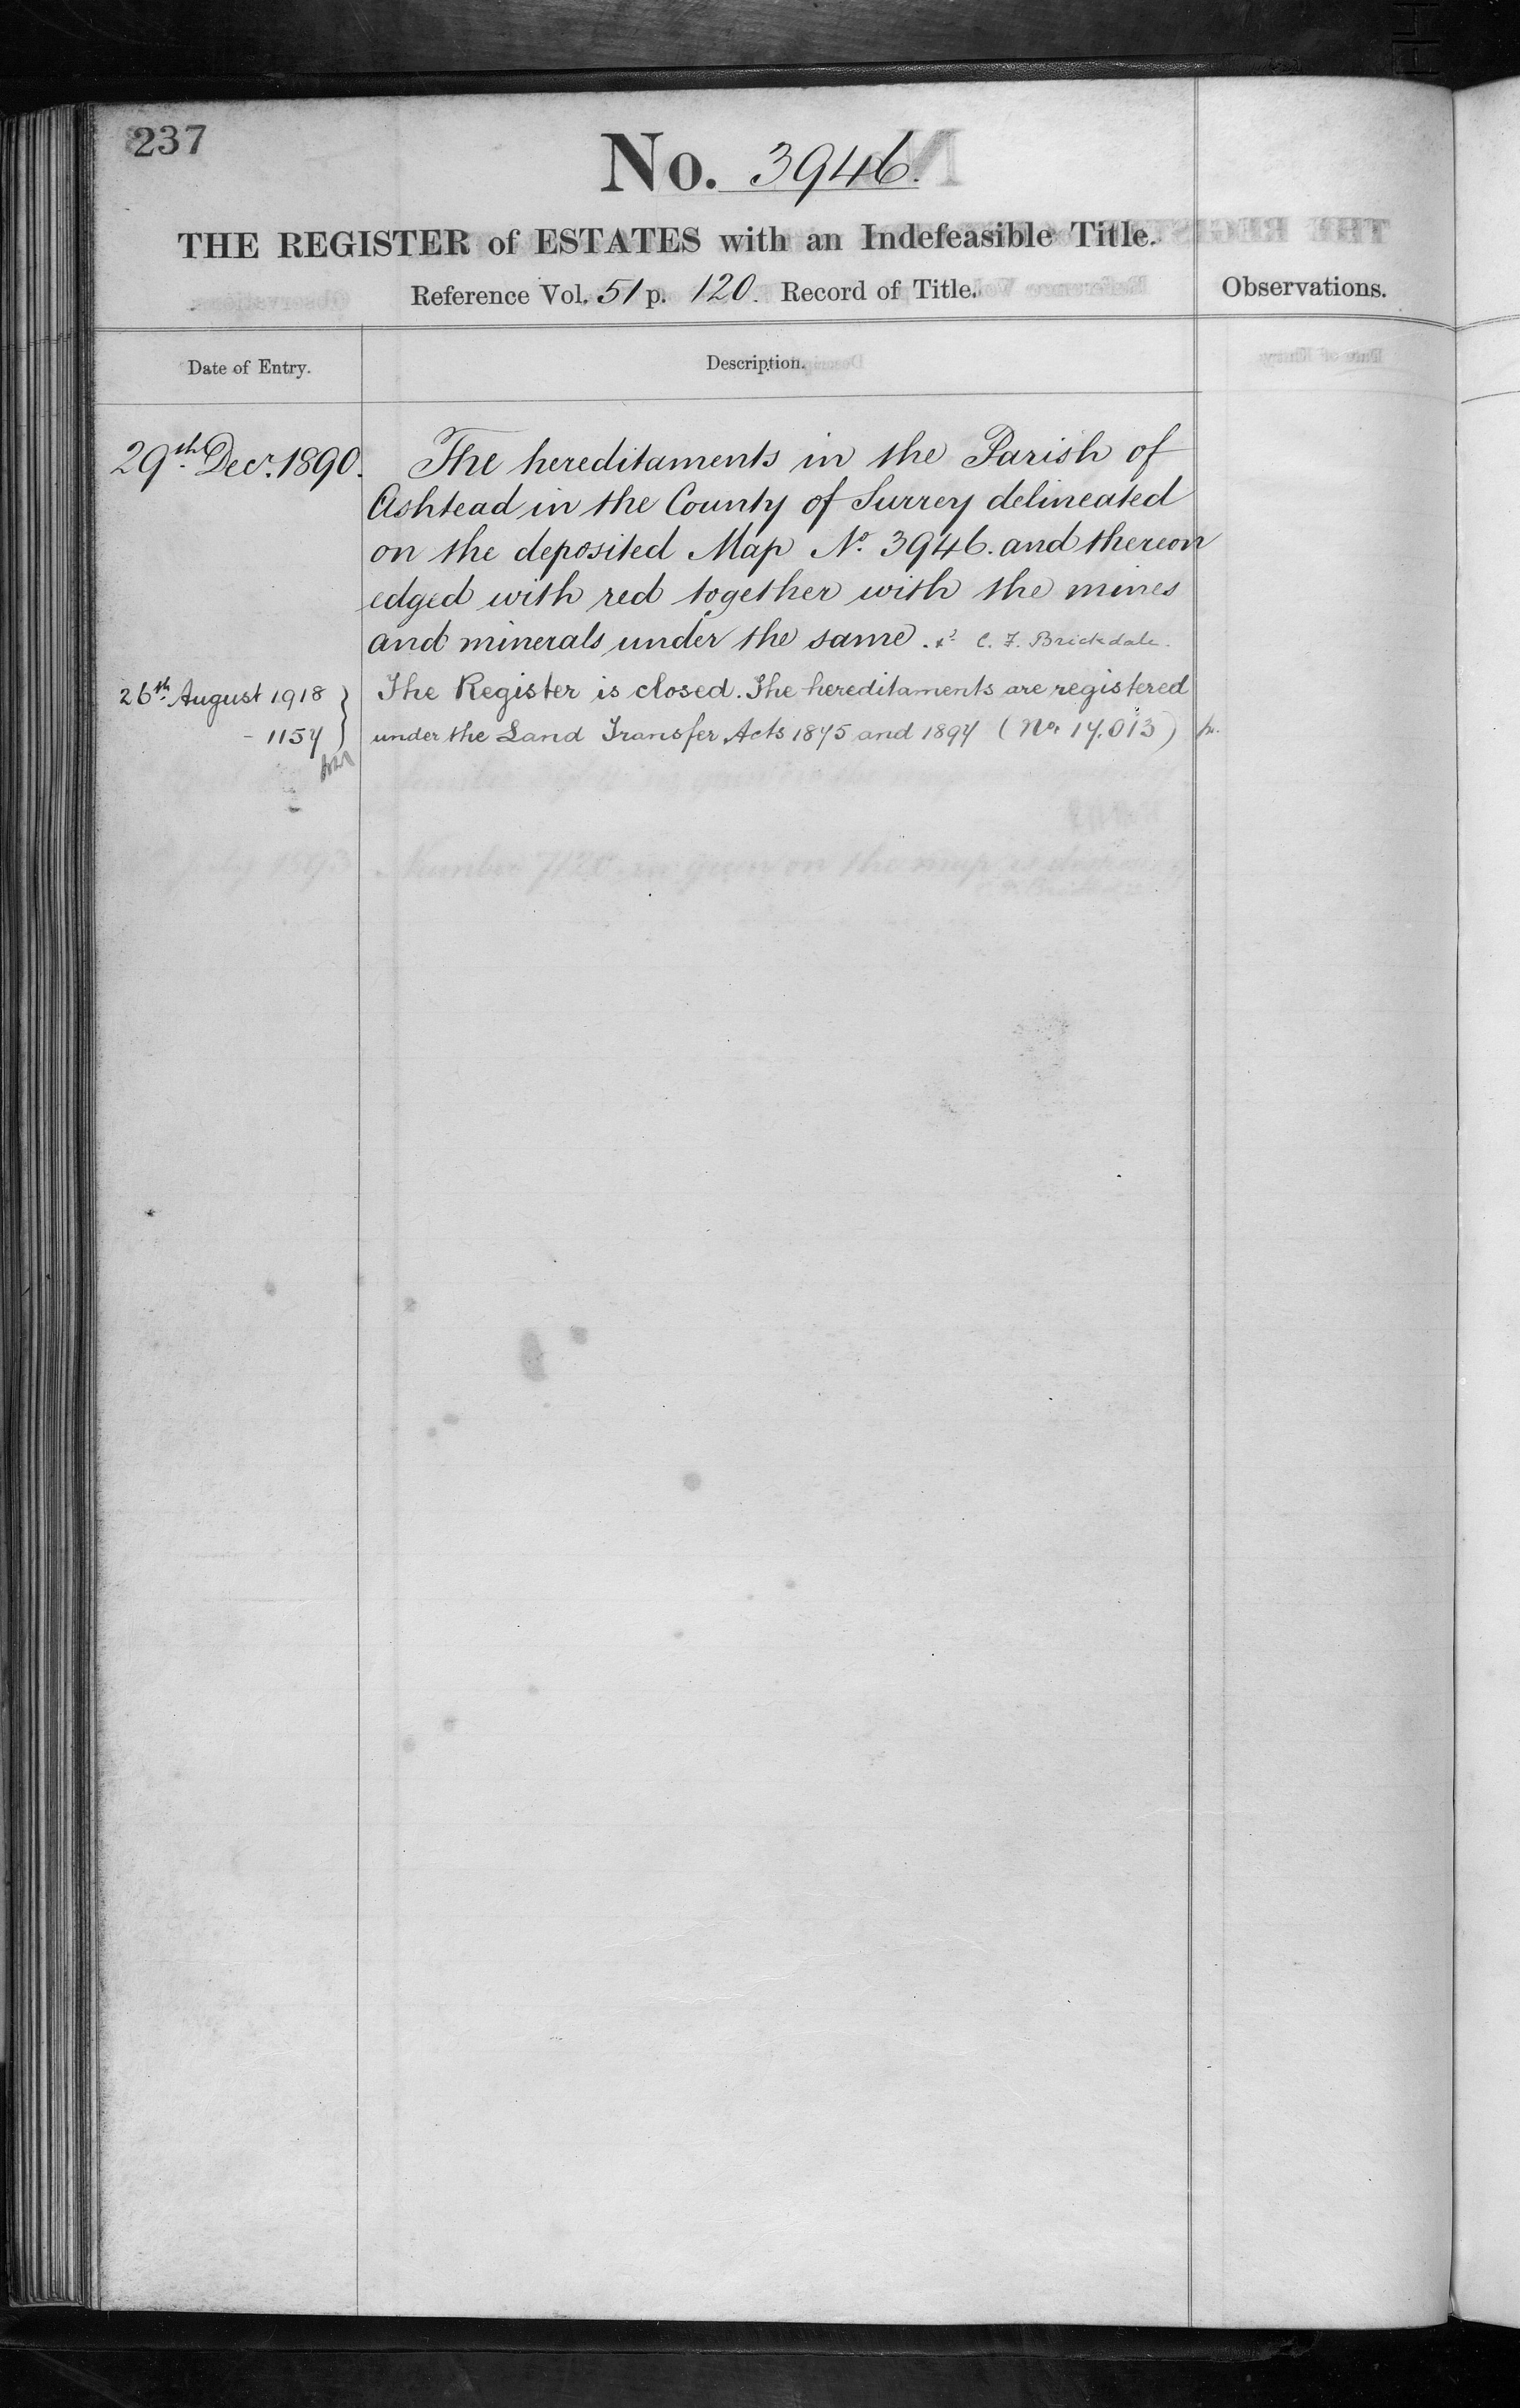 237
No. 3946.
THE REGISTER of ESTATES with an Indefeasible Title.
Reference Vol. 51 p. 120. Record of Title.
Observations.
Date of Entry.
Description.
29th Decr. 1890.
The hereditaments in the Parish of
Ashtead in the County of Surrey delineated
on the deposited Map No. 3946. and thereon
edged with red together with the mines
and minerals under the same. C. F. Brickdale.
26th August 1918
1157
The Register is closed. The hereditaments are registered
under the Land Transfer Acts 1875 and 1897 (No. 17,013)